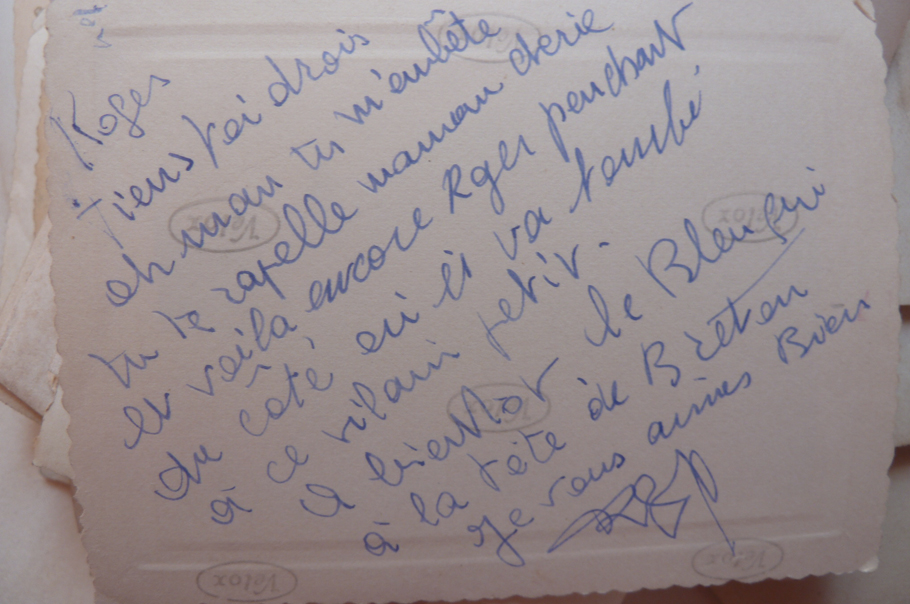 Roger
Tiens toi drois
oh man tu m'anbête
tu te rapelle maman cherie
et voila encore Roger penchant
du côté ou il va tombé
à ce vilain petit.
a bientot le Blanqui
à la tête de Breton
je vous aimes Bien
Velox
Velox
Velox
Velox
Velox
Velox